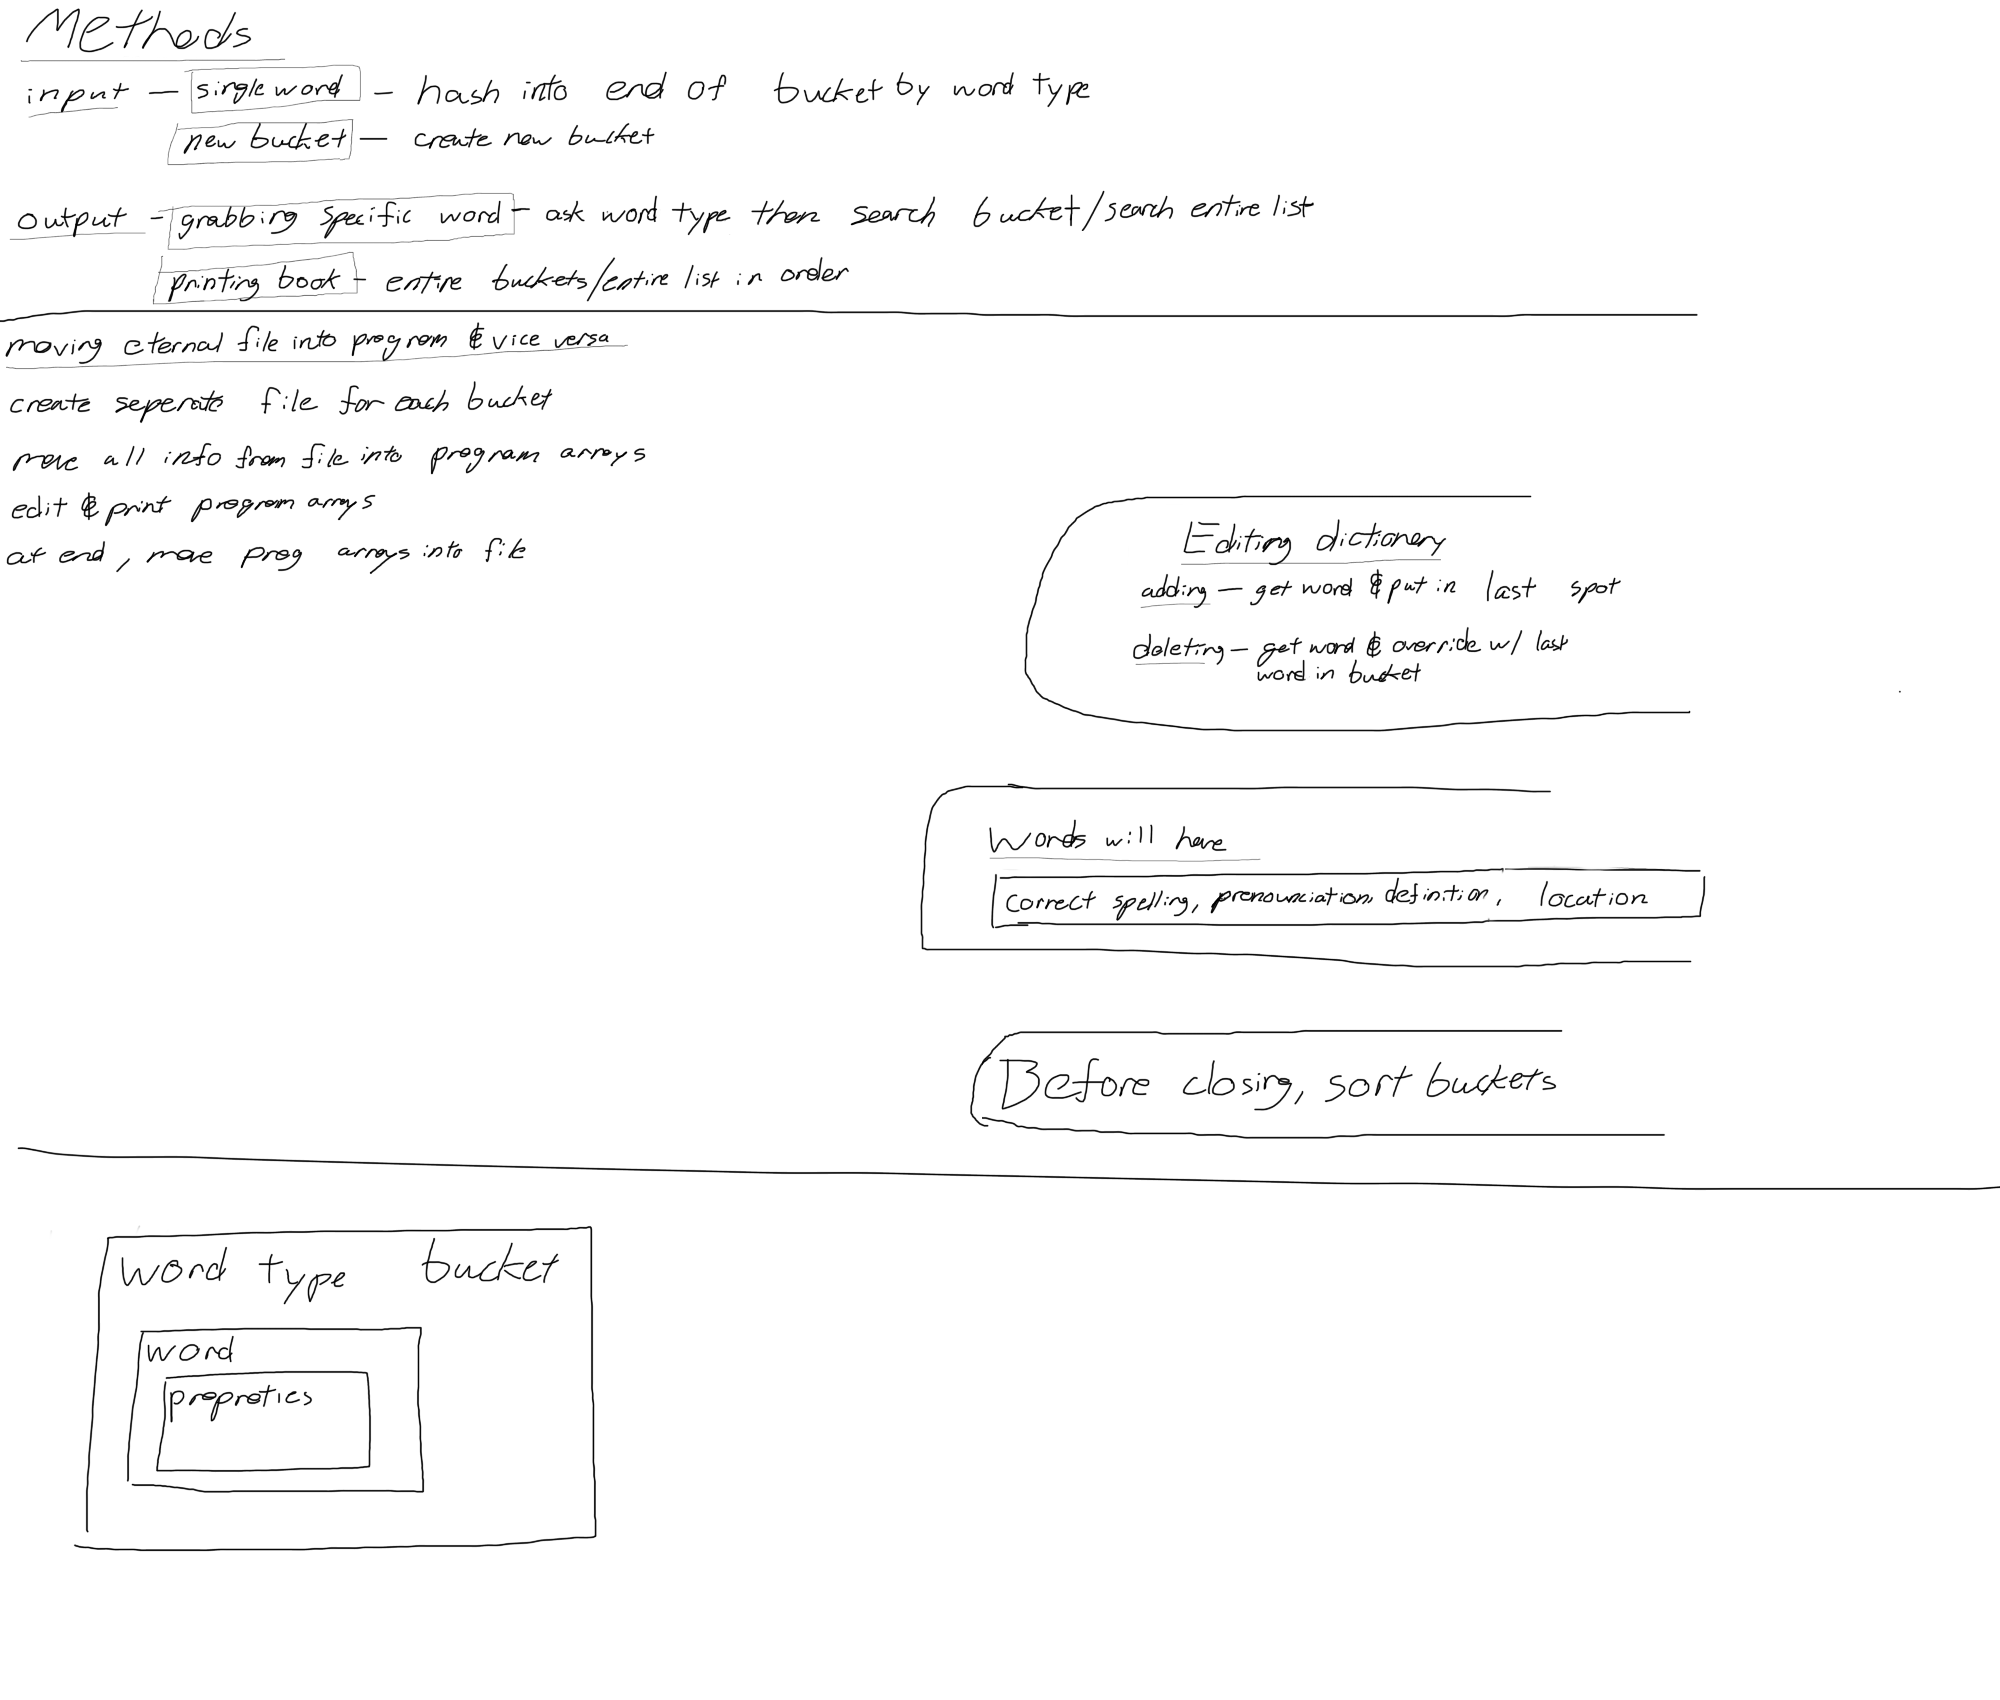 Methods
input — single word — hash into end of bucket by word type
new bucket — create new bucket
output - grabbing specific word - ask word type then search bucket/search entire list
printing book - entire buckets/entire list in order
moving eternal file into program & vice versa
create seperate file for each bucket
move all info from file into program arrays
edit & print program arrays
at end, move prog arrays into file
Editing dictionary
adding — get word & put in last spot
deleting — get word & override w/ last
word in bucket
Words will have
correct spelling, prenounciation, definition, location
Before closing, sort buckets
word type bucket
word
propretics